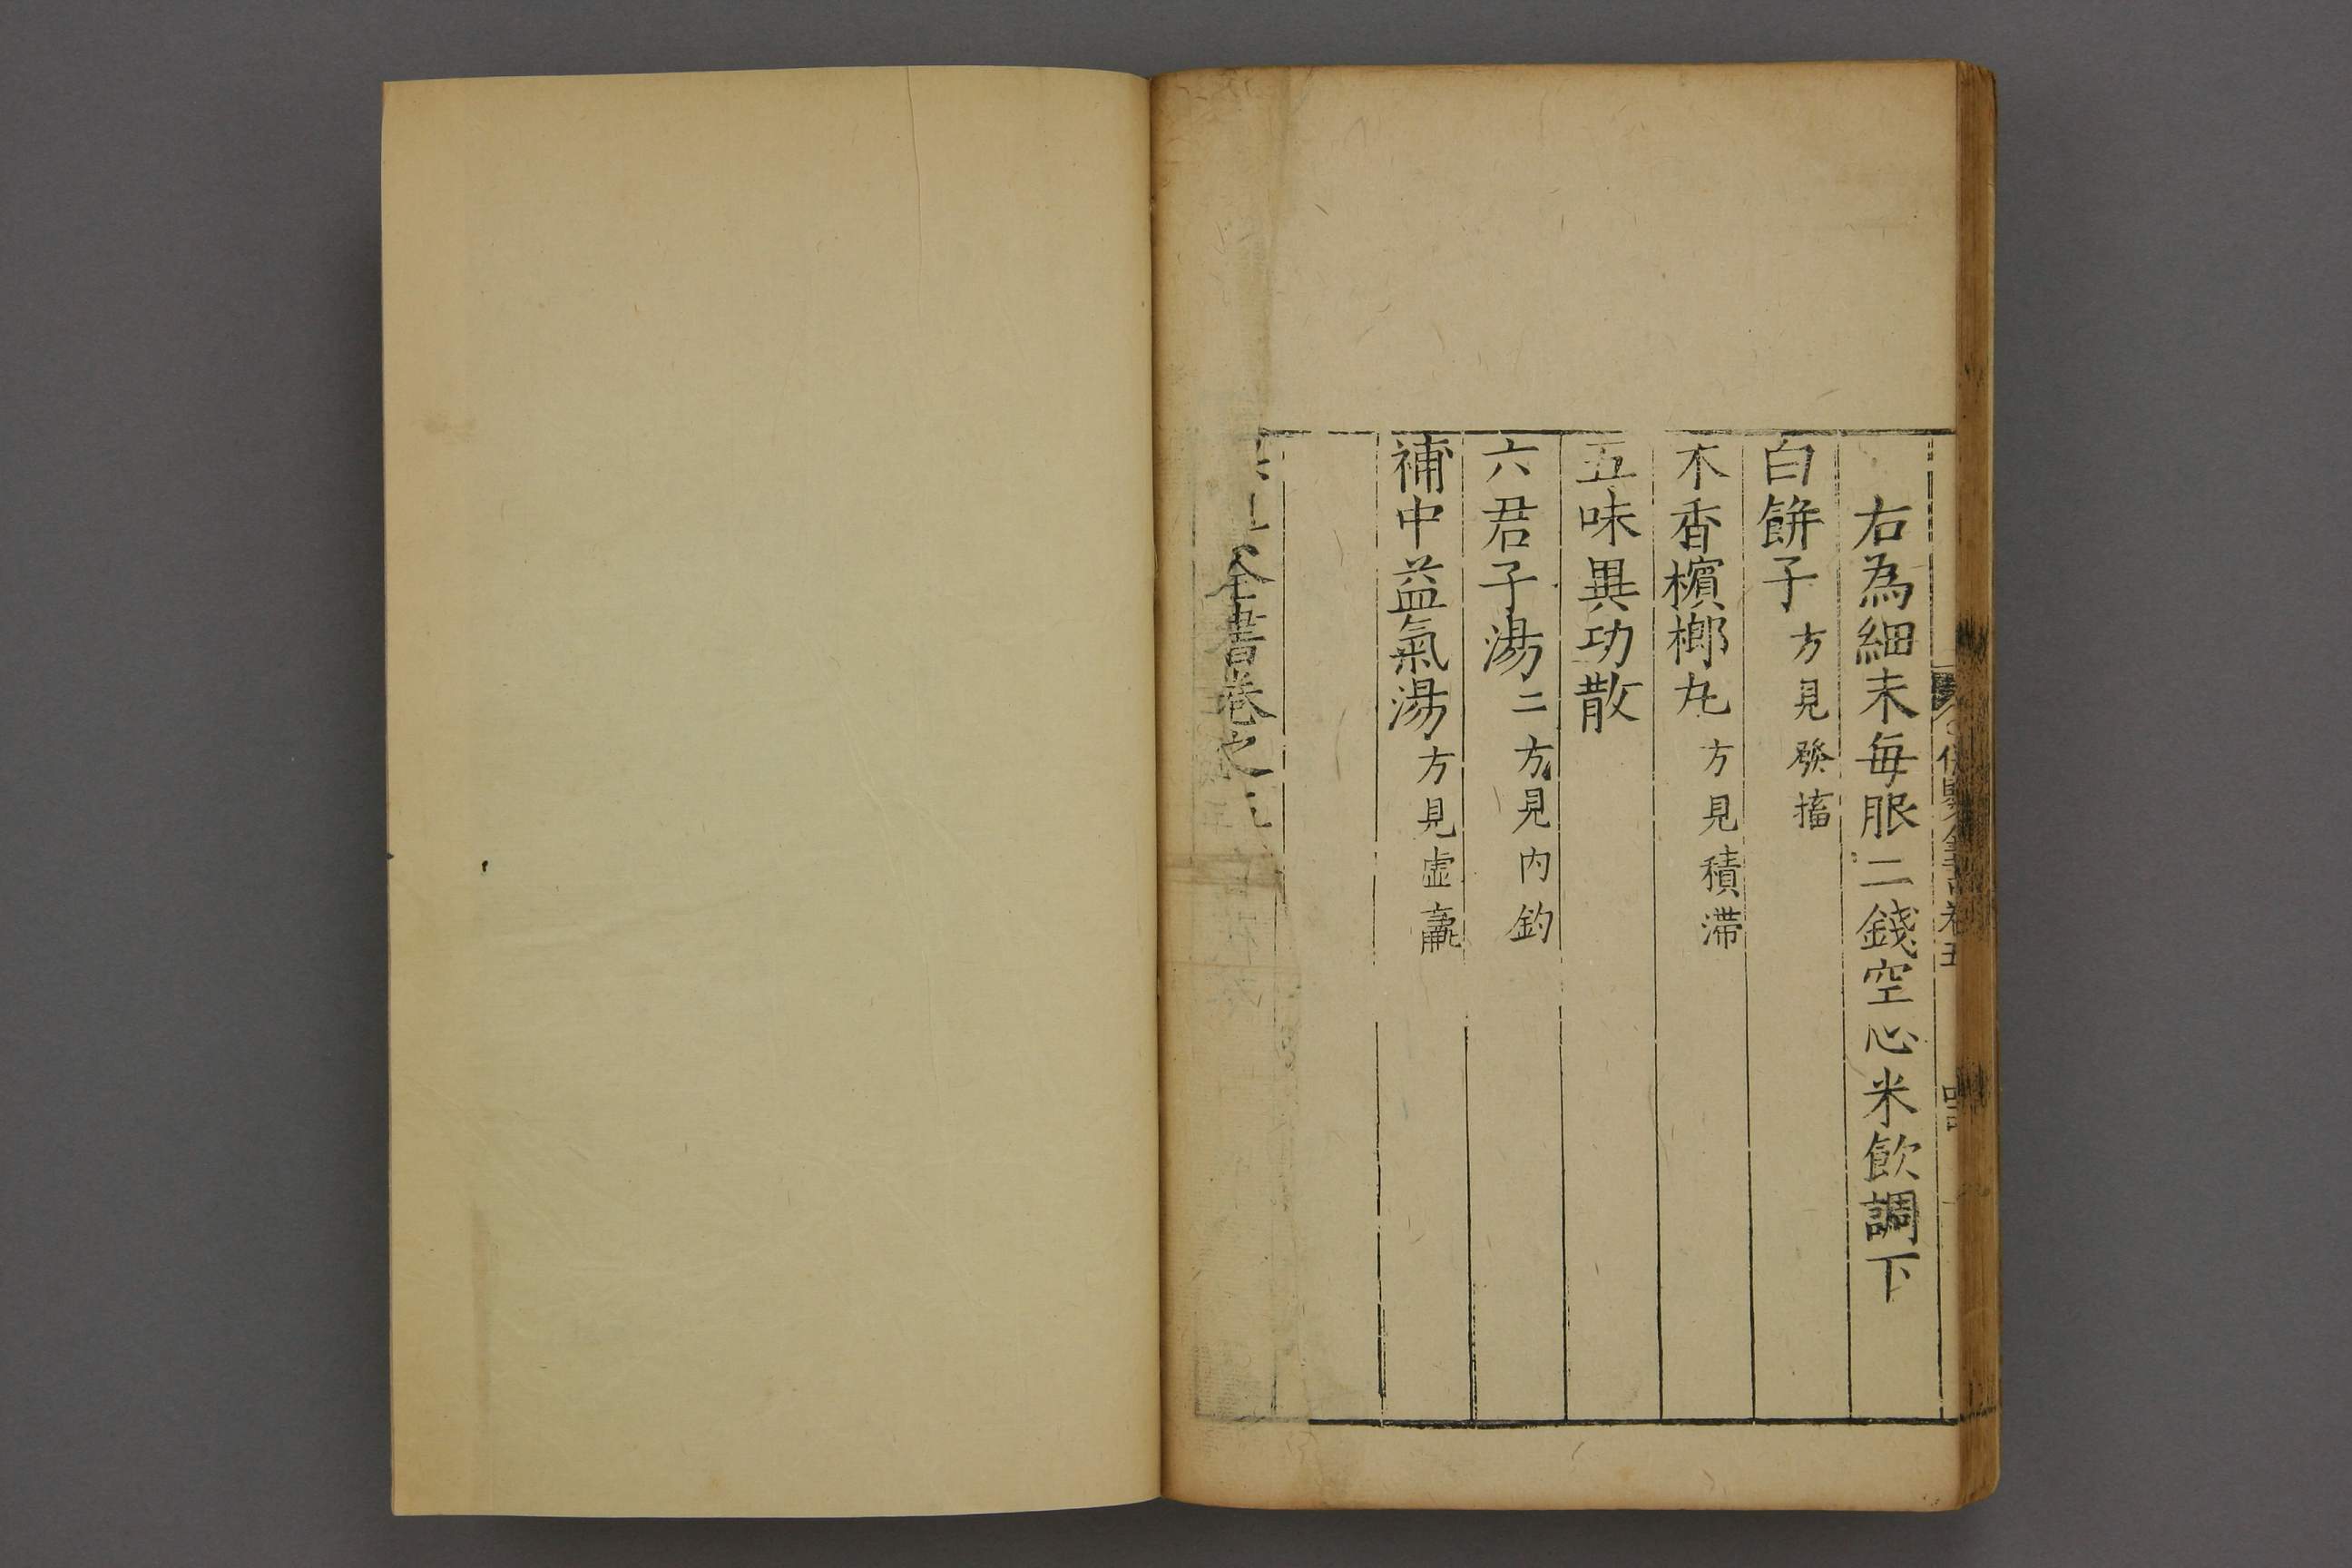 右為細末每服二錢空心米飲調下
白餅子方見發搐
木香檳榔丸方見積滯
五味異功散
六君子湯二方見內釣
補中益氣湯方見虛羸
全書卷之